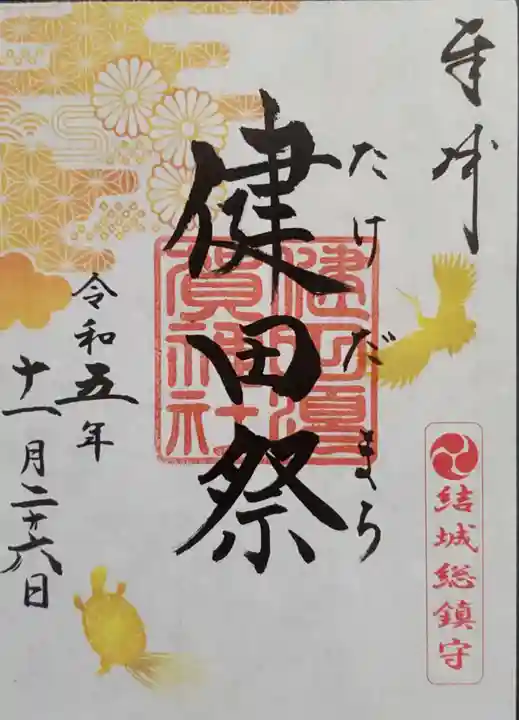 奉拝
結城総鎮守
たけだまつり
健田祭
健田須
賀神社
令和五年
十一月二十六日